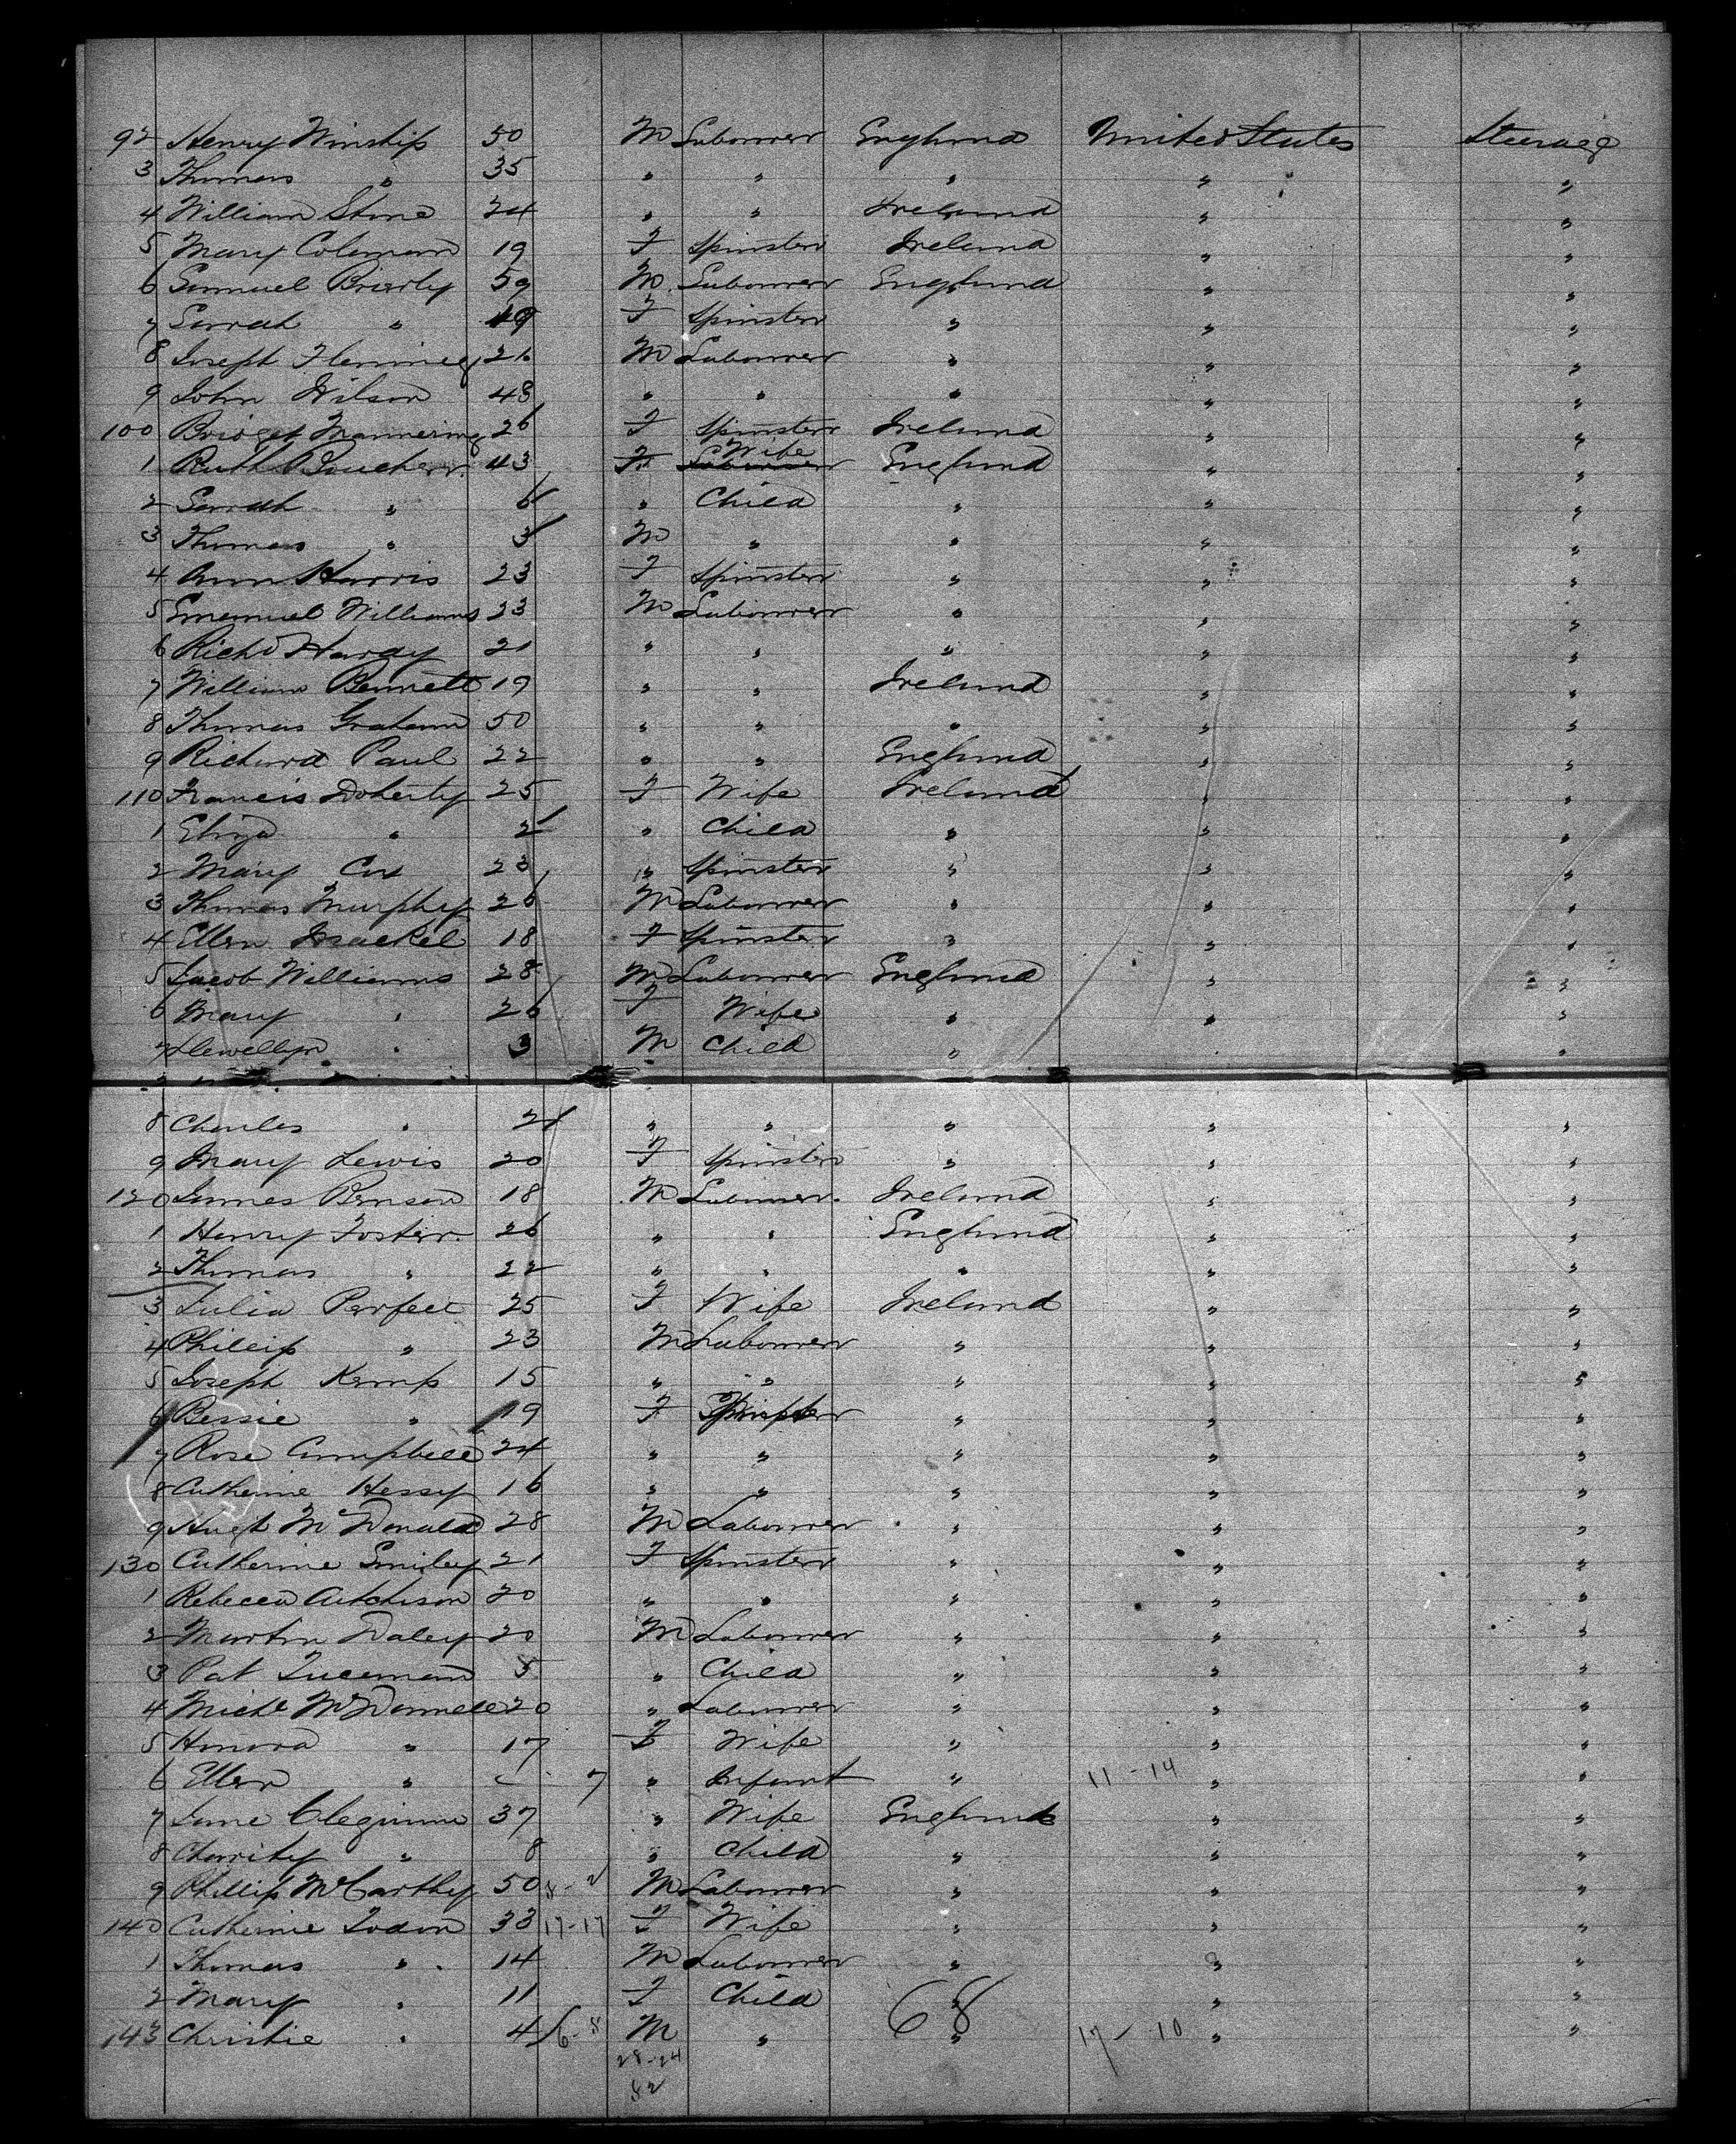 92 Henry Winship 50 M Labourer England United States Steerage
3 Thomas " 35 " " " " "
4 William Stone 24 " " Ireland " "
5 Mary Coleman 19 F Spinster Ireland " "
6 Samuel Brierly 59 M Labourer England " "
7 Sarah " 19 F Spinster " " "
8 Joseph Fleming 21 M Labourer " " "
9 John Wilson 48 " " " " "
100 Bridget Mannering 26 F Spinster Ireland " "
1 Ruth Boucher 43 F Wife England " "
2 Sarah " 6 " Child " " "
3 Thomas " 3 M " " " "
4 Ann Harris 23 F Spinster " " "
5 Emanuel Williams 23 M Labourer " " "
6 Richd Hardy 21 " " " " "
7 William Bennett 19 " " Ireland " "
8 Thomas Graham 50 " " " " "
9 Richard Paul 22 " " England " "
110 Francis Doherty 25 F Wife Ireland " "
1 Eliza " 2 " Child " " "
2 Mary Cox 23 " Spinster " " "
3 Thomas Murphy 26 M Labourer " " "
4 Ellen Mackel 18 F Spinster " " "
5 Jacob Williams 28 M Labourer England " "
6 Mary " 26 F Wife " " "
7 Llewellyn " 3 M Child " "
8 Charles " 2 " " " " "
9 Mary Lewis 20 F Spinster " " "
120 James Benson 18 M Labourer Ireland " "
1 Henry Foster 26 " " England " "
2 Thomas " 22 " " " " "
3 Julia Perfect 25 F Wife Ireland " "
4 Phillip " 23 M Labourer " " "
5 Joseph Kemp 15 " " " " "
6 Bessie " 19 F " " "
7 Rose Campbell 24 " " " " "
8 Catherine Hessy 16 " " " " "
9 Hugh McDonald 28 M Labourer " " "
130 Catherine Smiley 21 F Spinster " " "
1 Rebecca Aitchison 20 " " " " "
2 Martin Daley 20 M Labourer " " "
3 Pat 5 " Child " " "
4 Michl McDonnell 20 " Labourer " " "
5 Honora " 17 F Wife " " "
6 Ellen " 7 " Infant " 11-14 " "
7 Jane 37 " Wife England " "
8 Charrity " 8 " Child " " "
9 Phillip McCarthy 50 M Labourer " " "
140 Catherine 33 17-17 F Wife " " "
1 Thomas " 14 M Labourer " " "
2 Mary " 11 F Child " " "
143 Christie " 4 M " " 68 17-10 " "
28-24